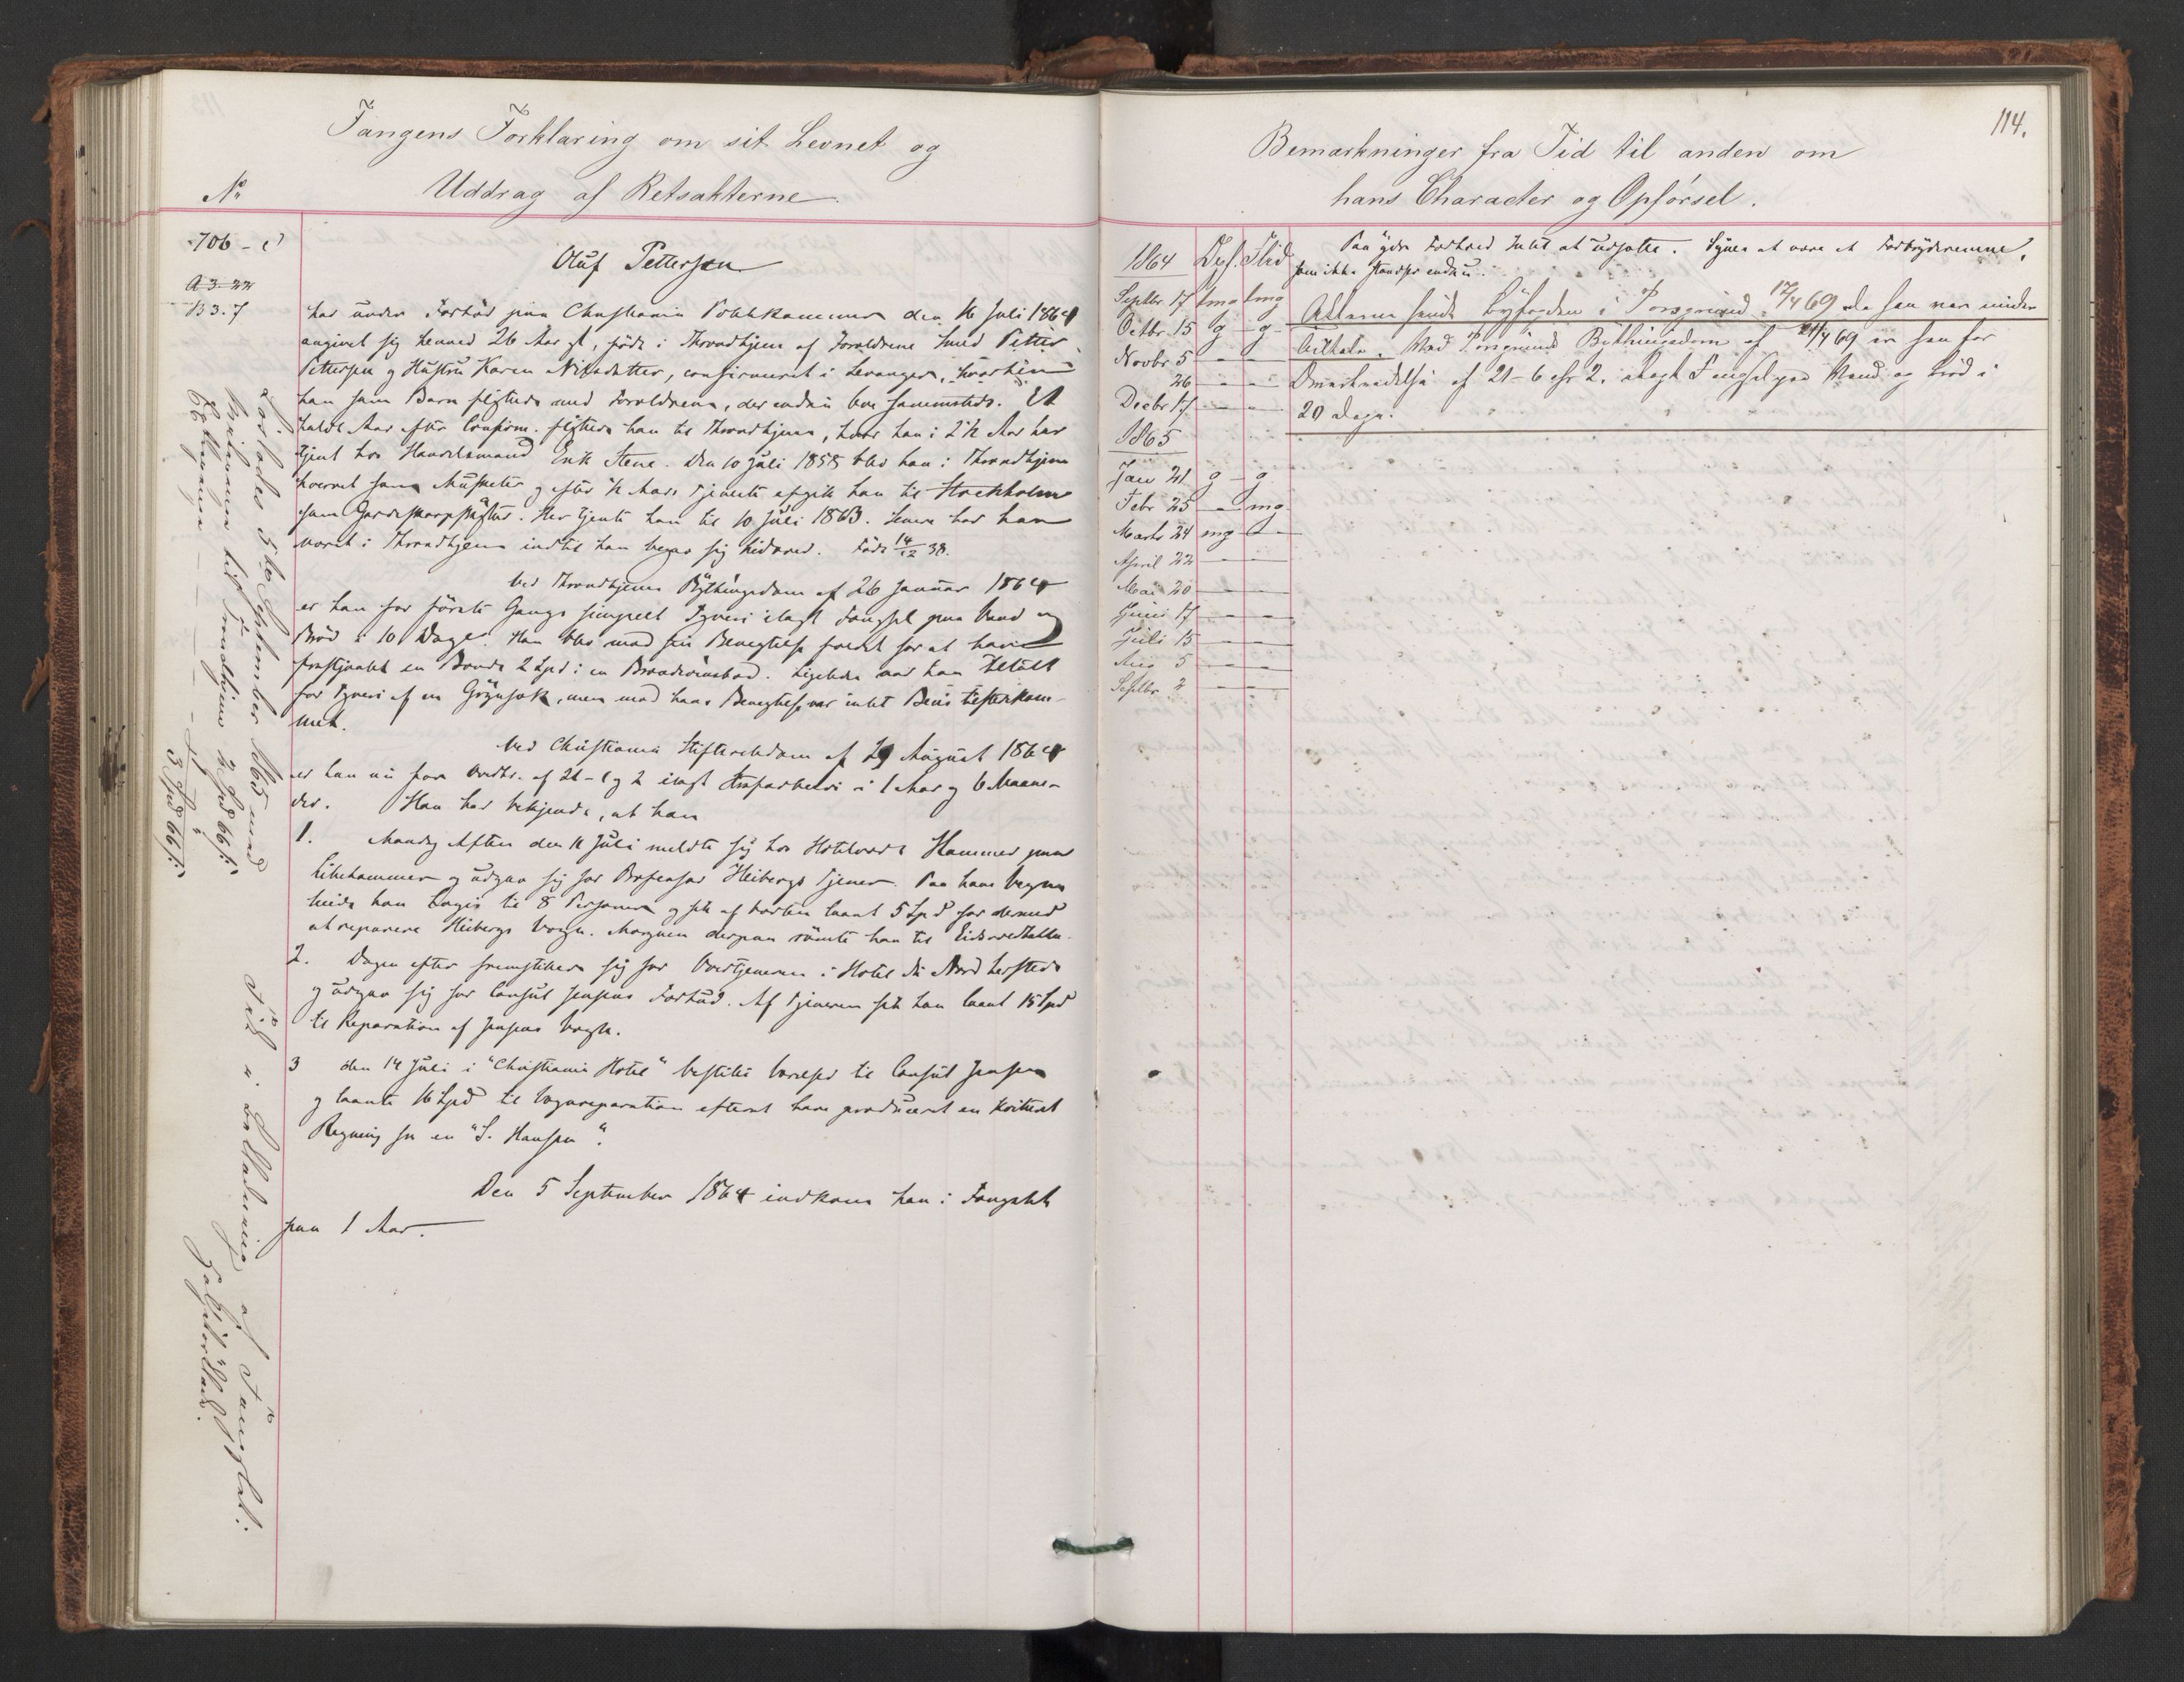 Fangens Forklaring om sit Levnet og
No Uddrag af Retsakterne
706 - c
A 3. 22
B 3. 7
Oluf Pettersen
har under Forhör paa Christiania Politikammer den 16 Juli 1864
angivet sig henved 26 Aar gl, födt i Throndhjem af Forældrene Smed Petter
Pettersen og Hustru Karen Nilsdatter, confirmeret i Levanger, hvorhen
han som Barn flyttede med Forældrene, der endnu bor sammesteds. Et
halvt Aar efter Confirm. flyttede han til Throndhjem, hvor han i 2½ Aar har
tjent hos Handelsmand Erik Stene. Den 10 Juli 1858 blev han i Throndhjem
hvervet som Musketer og efter ½ Aars Tjeneste afgik han til Stockholm
som Gardeskarpskytter. Her tjente han til 10 Juli 1863. Senere har han
været i Throndhjem indtil han begav sig hidover. Födt 14/12 38.
Ved Throndhjems Bythingsdom af 26 Januar 1864
er han for förste Gangs simpelt Tyveri ilagt Fængsel paa Vand og
Bröd i 10 Dage. Han blev mod sin Benegtelse fældet for at have
frastjaalet en Bonde 2 Spd i en Brændevinsbod. Ligeledes var han tiltalt
for Tyveri af en Grynsæk, men mod hans Benegtelse var intet Bevis tilstrækom-
met.
Ved Christiania Stiftsretsdom af 29 August 1864
er han nu for Overtr. af 21 - 1 og 2 ilagt Strafarbeide i 1 Aar og 6 Maane-
der. Han har bekjendt, at han
1. Mandag Aften den 11 Juli meldte sig hos Hotelvært Hammer paa
Lillehammer og udgav sig for Professor Heibergs Tjener. Paa hans Vegne
leiede han Logis til 8 Personer og fik af Værten laant 5 Spd for dermed
at reparere Heibergs Vogn. Morgenen derpaa römte han til Eidsvold
2. Dagen efter fremstillede sig for Overtjeneren i Hotel du Nord hersteds
og udgav sig for Consul Jensens Forbud. Af Tjeneren fik han laant 15 Spd
til Reparation af Jensens Vogn.
3 den 14 Juli i "Christiania Hotel" bestilte Værelser til Consul Jensen
og laante 16 Spd til Vognreparation efterat have produceret en kvitteret
Regning fra en "S. Hansen".
Den 5 September 1864 indkom han i Fængslet
paa 1 Aar.
Lösladt 5te September 1865 med
til Trondhjem 2 Spd 66 s:
3 Spd 66 s:
af Fængslet:
114.
Bemærkninger fra Tid til anden om
hans Character og Opförsel.
1864 Opf. Flid
Septbr. 17 tmg tmg
Octbr. 15 g - g -
Novbr 5 - -
26 - -
Decbr 17 - -
1865
Jan 21 g - g
Febr 25 - mg
Marts 24 mg -
April 22 - -
Mai 20 - -
Juni 17 - -
Juli 15 - -
Aug 5 - -
Septbr 2 - -
Paa ydre Forhold Intet at udsætte. Synes at være et Forbryderemne,
som ikke standser endnu.
Akterne sendt Byfogden i Porsgrund 17/4 69 da han var under
Tiltale. Ved Porsgrunds Bythingsdom af 21/4 69 er han for
Overtrædelse af 21-6 cfr 2. ilagt Fængsel paa Vand og Bröd i
20 Dage.